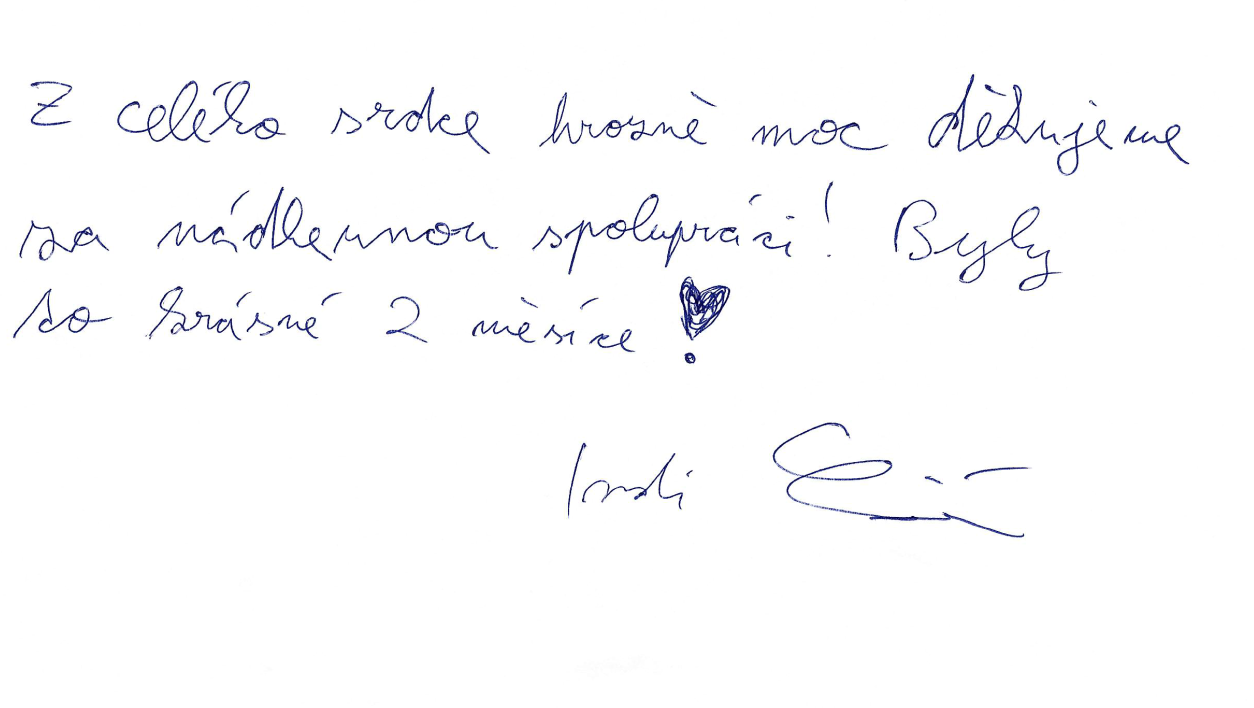 Z celého srdce hrozně moc děkujeme
za nádhernou spolupráci! Byly
to krásné 2 měsíce